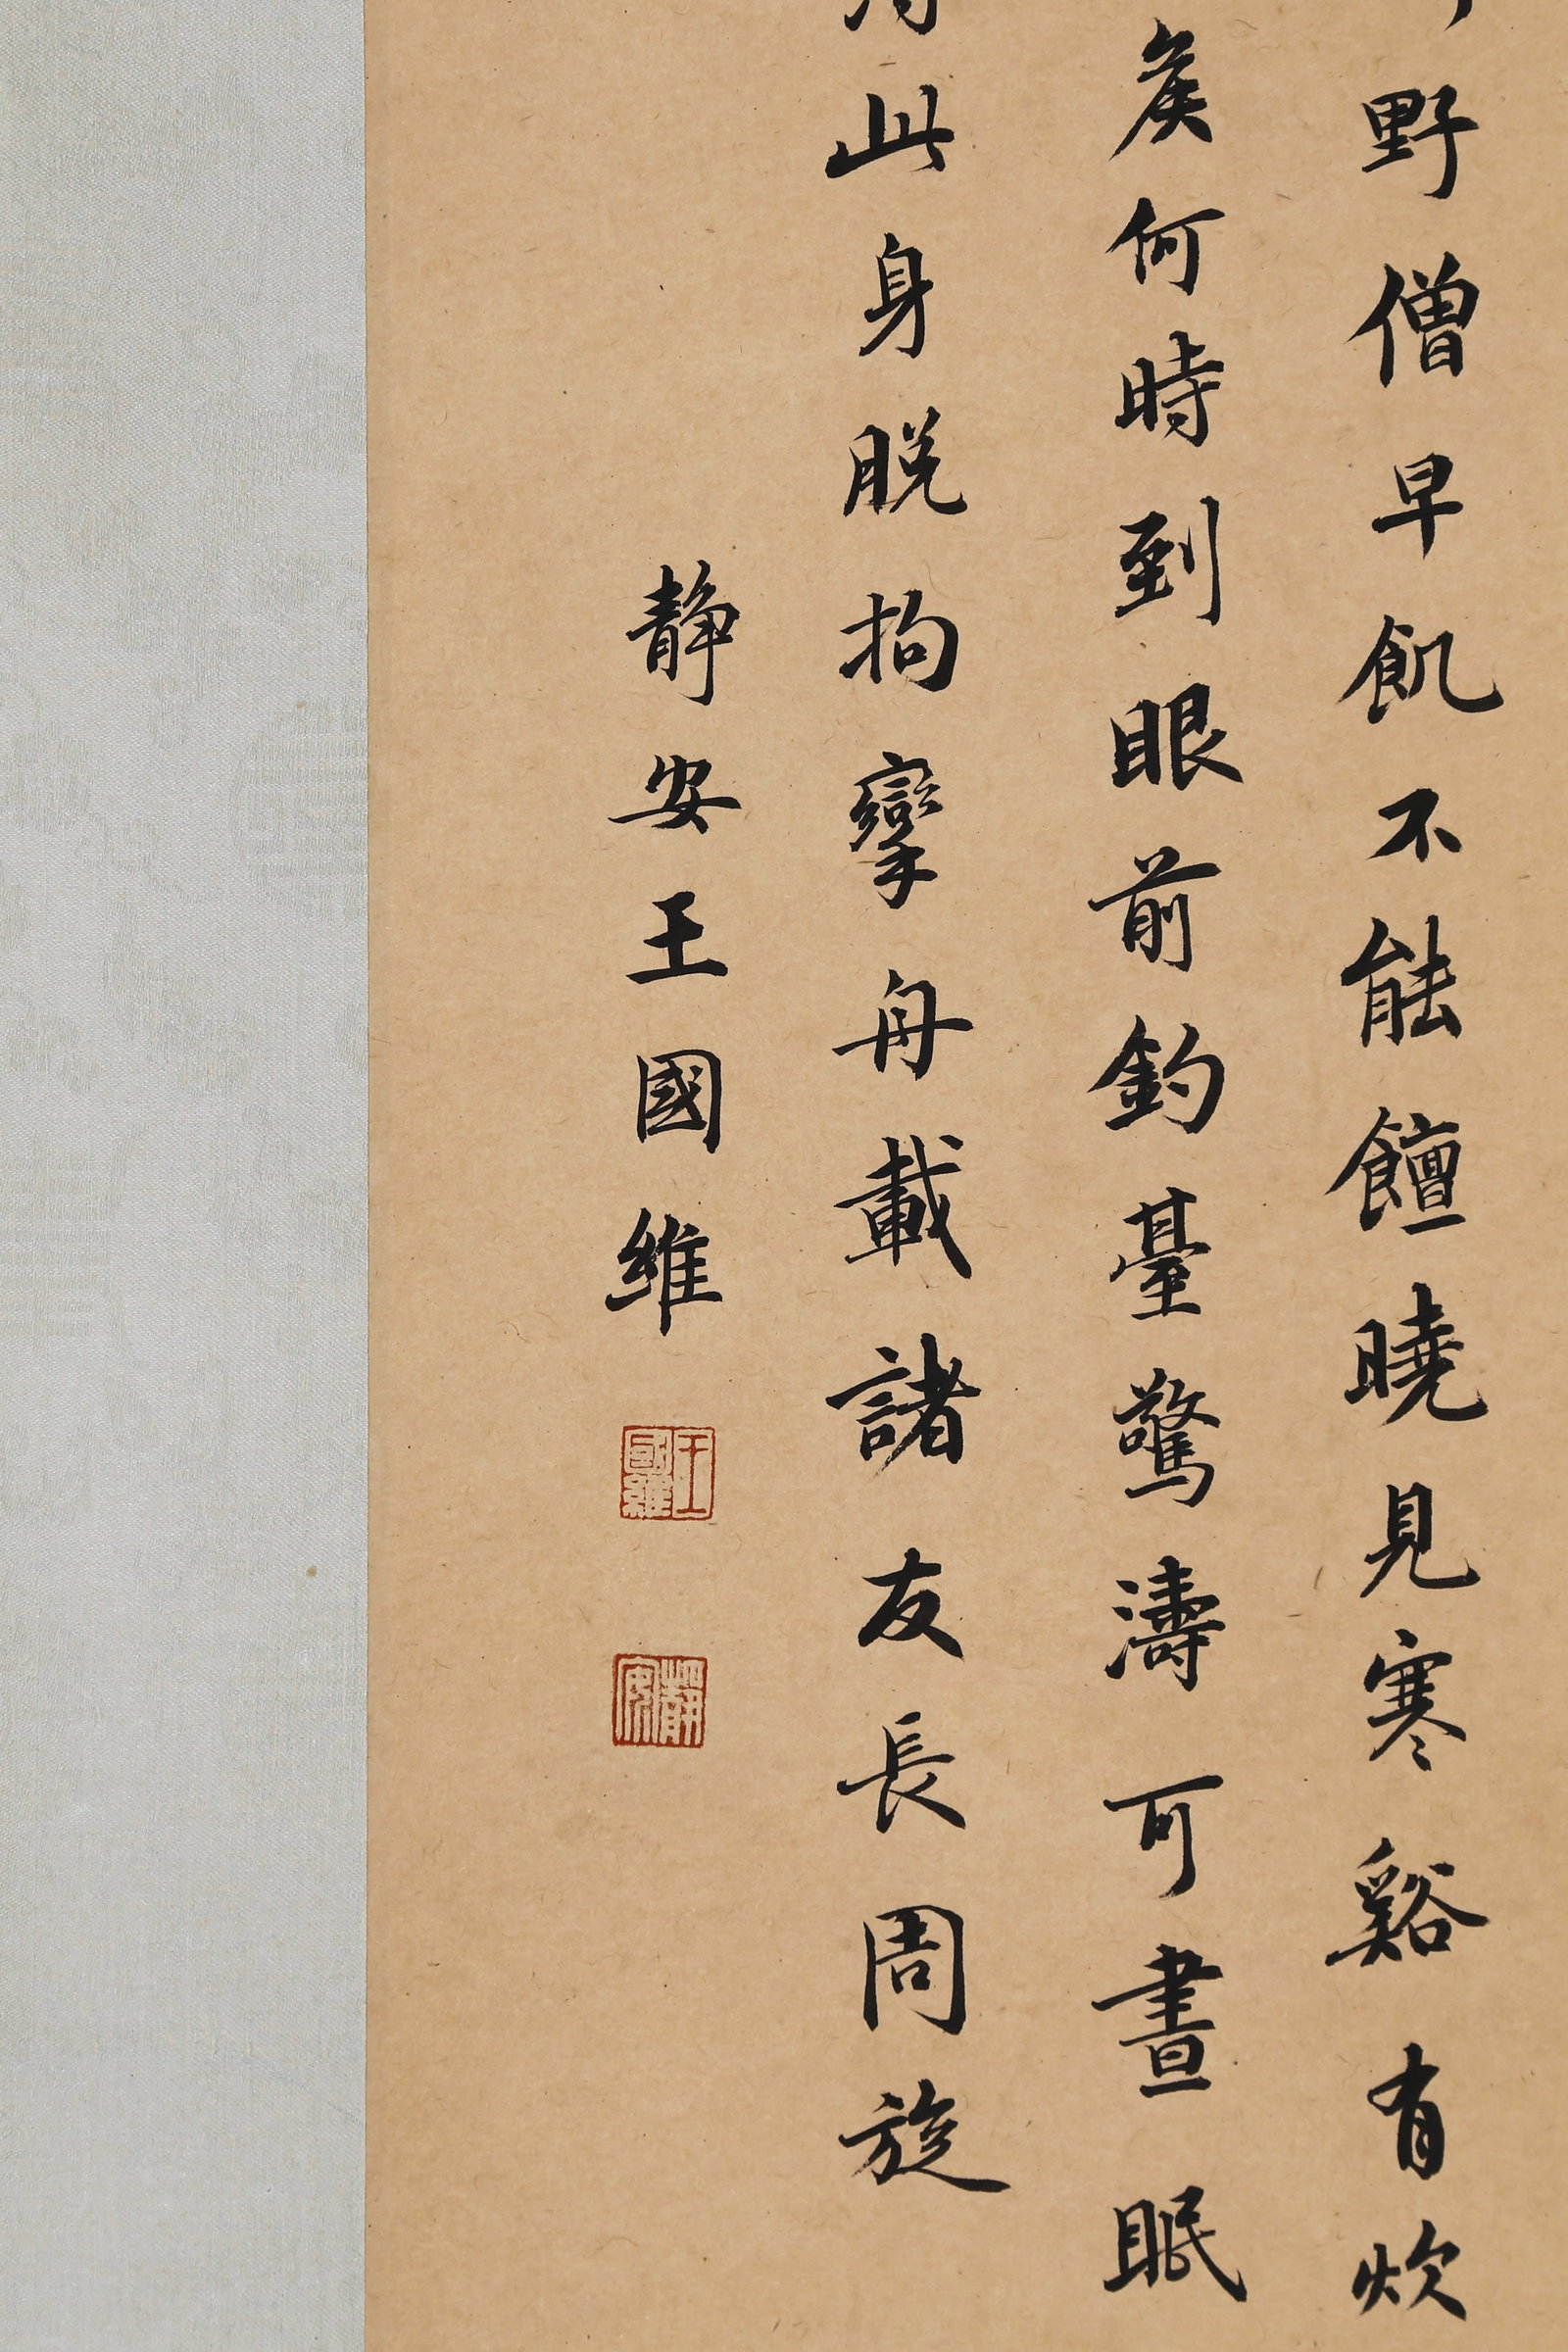 野僧早飢不能饘曉見寒谿有炊
矦何時到眼前釣臺驚濤可晝眠
此身脱拘攣舟載諸友長周旋
静安王國維
王國維
靜安